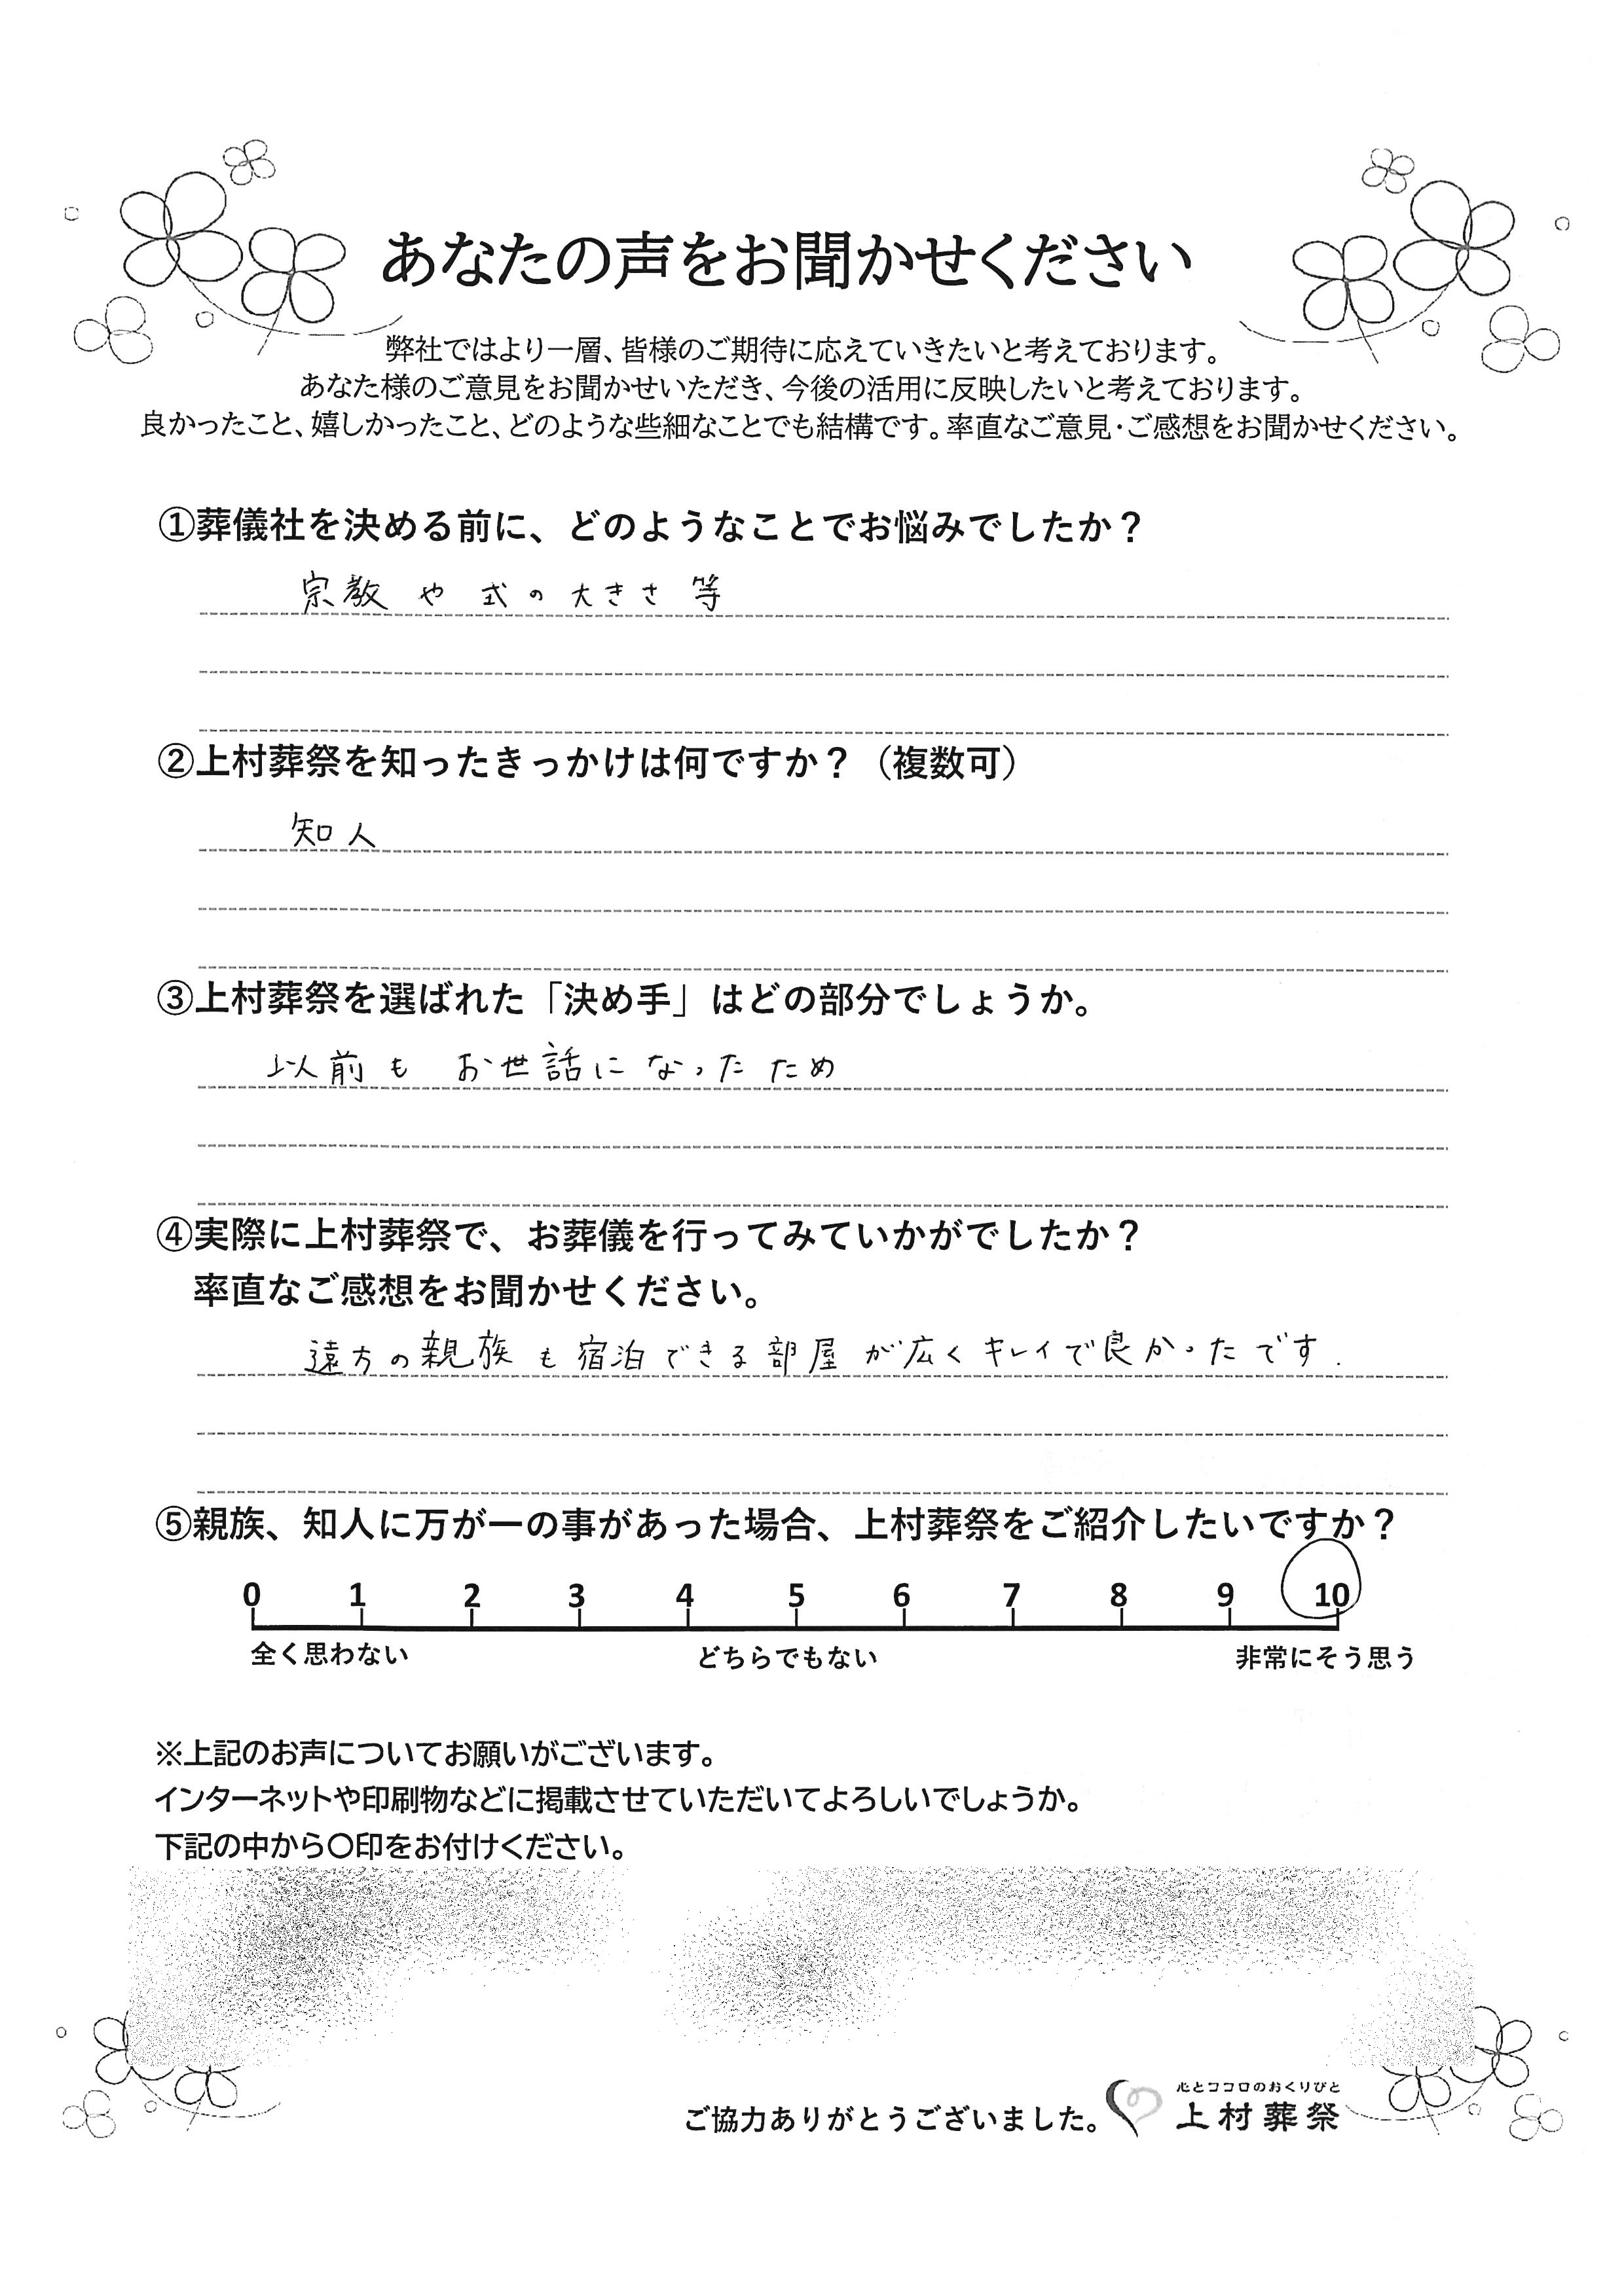 あなたの声をお聞かせください
弊社ではより一層、皆様のご期待に応えていきたいと考えております。
あなた様のご意見をお聞かせいただき、今後の活用に反映したいと考えております。
良かったこと、嬉しかったこと、どのような些細なことでも結構です。率直なご意見・ご感想をお聞かせください。
①葬儀社を決める前に、どのようなことでお悩みでしたか？
宗教や式の大きさ等
②上村葬祭を知ったきっかけは何ですか？（複数可）
知人
③上村葬祭を選ばれた「決め手」はどの部分でしょうか。
以前もお世話になったため
④実際に上村葬祭で、お葬儀を行ってみていかがでしたか？
率直なご感想をお聞かせください。
遠方の親族も宿泊できる部屋が広くキレイで良かったです.
⑤親族、知人に万が一の事があった場合、上村葬祭をご紹介したいですか？
0 1 2 3 4 5 6 7 8 9 10
全く思わない どちらでもない 非常にそう思う
※上記のお声についてお願いがございます。
インターネットや印刷物などに掲載させていただいてよろしいでしょうか。
下記の中から〇印をお付けください。
心とココロのおくりびと
ご協力ありがとうございました。 上村葬祭